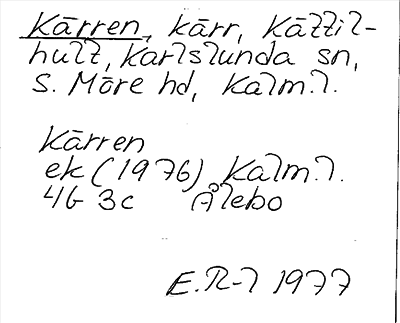 Kärren, kärr, Källil-
hult, Karlslunda sn,
S. Möre hd, Kalm.l.
Kärren
ek (1976) Kalm.l.
4G 3c Ålebo
E.R-l 1977